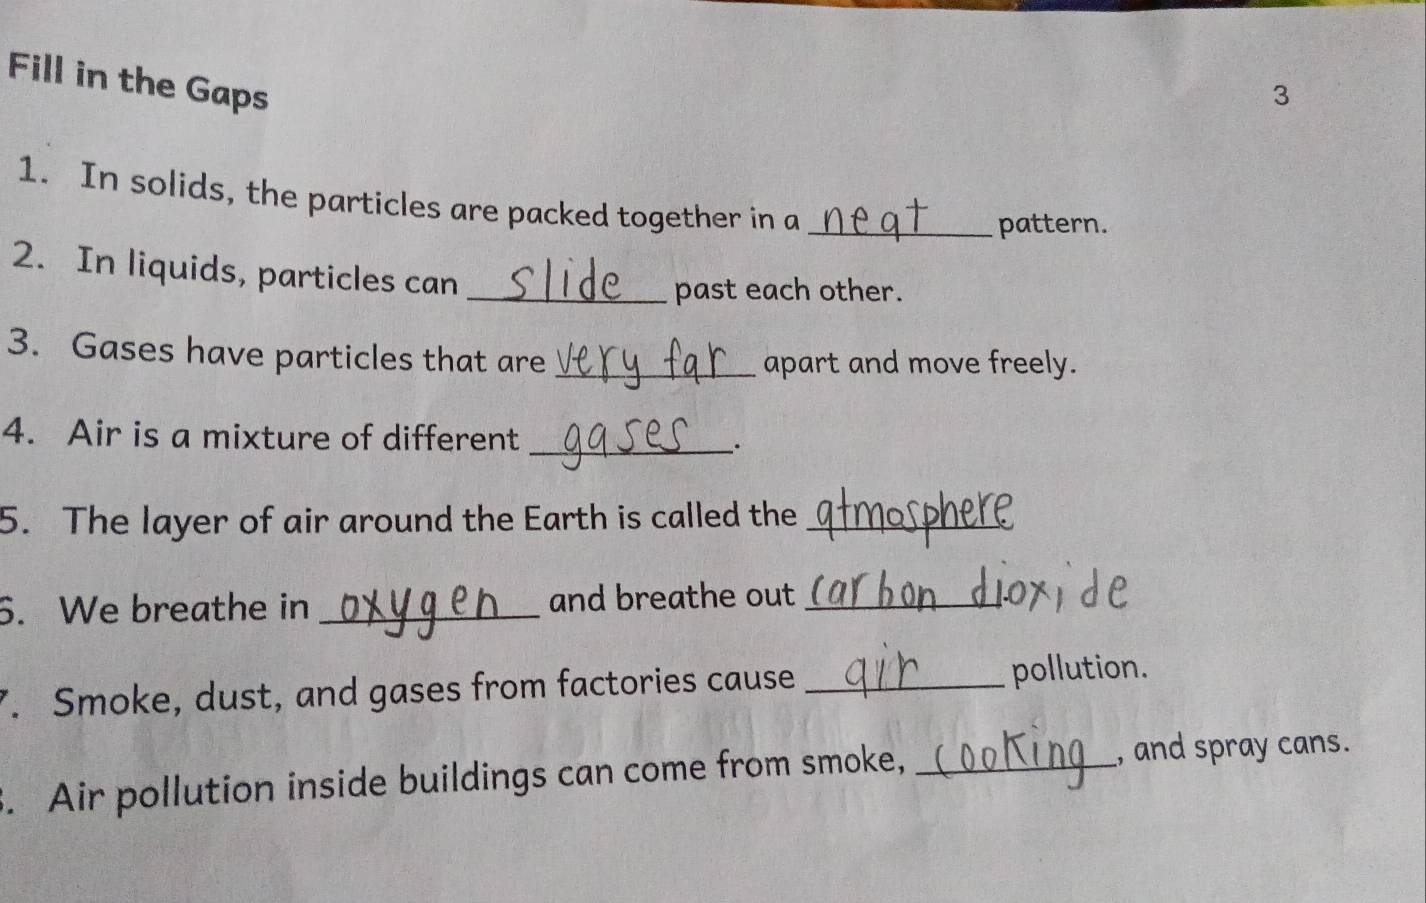 Fill in the Gaps
3
1. In solids, the particles are packed together in a neat pattern.
2. In liquids, particles can slide past each other.
3. Gases have particles that are very far apart and move freely.
4. Air is a mixture of different gases.
5. The layer of air around the Earth is called the atmosphere
6. We breathe in oxygen and breathe out carbon dioxide
7. Smoke, dust, and gases from factories cause air pollution.
8. Air pollution inside buildings can come from smoke, cooking, and spray cans.